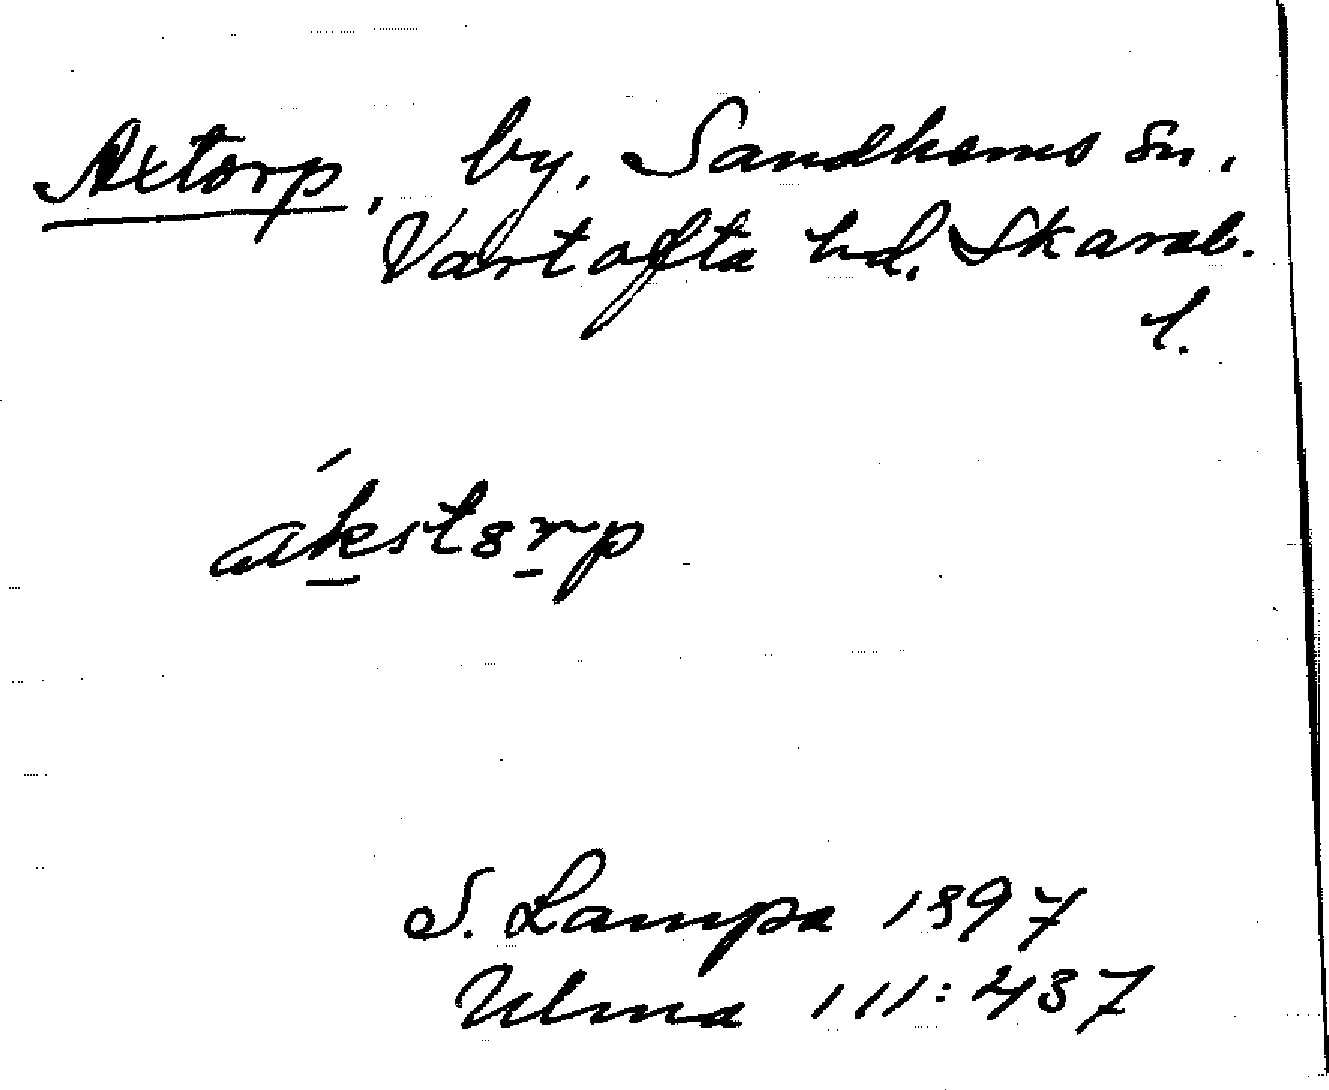 Axtorp, by, Sandhems sn,
Vartofta hd. Skarab.
l.
ákstorp
S. Lampa 1897
Ulma 111:437